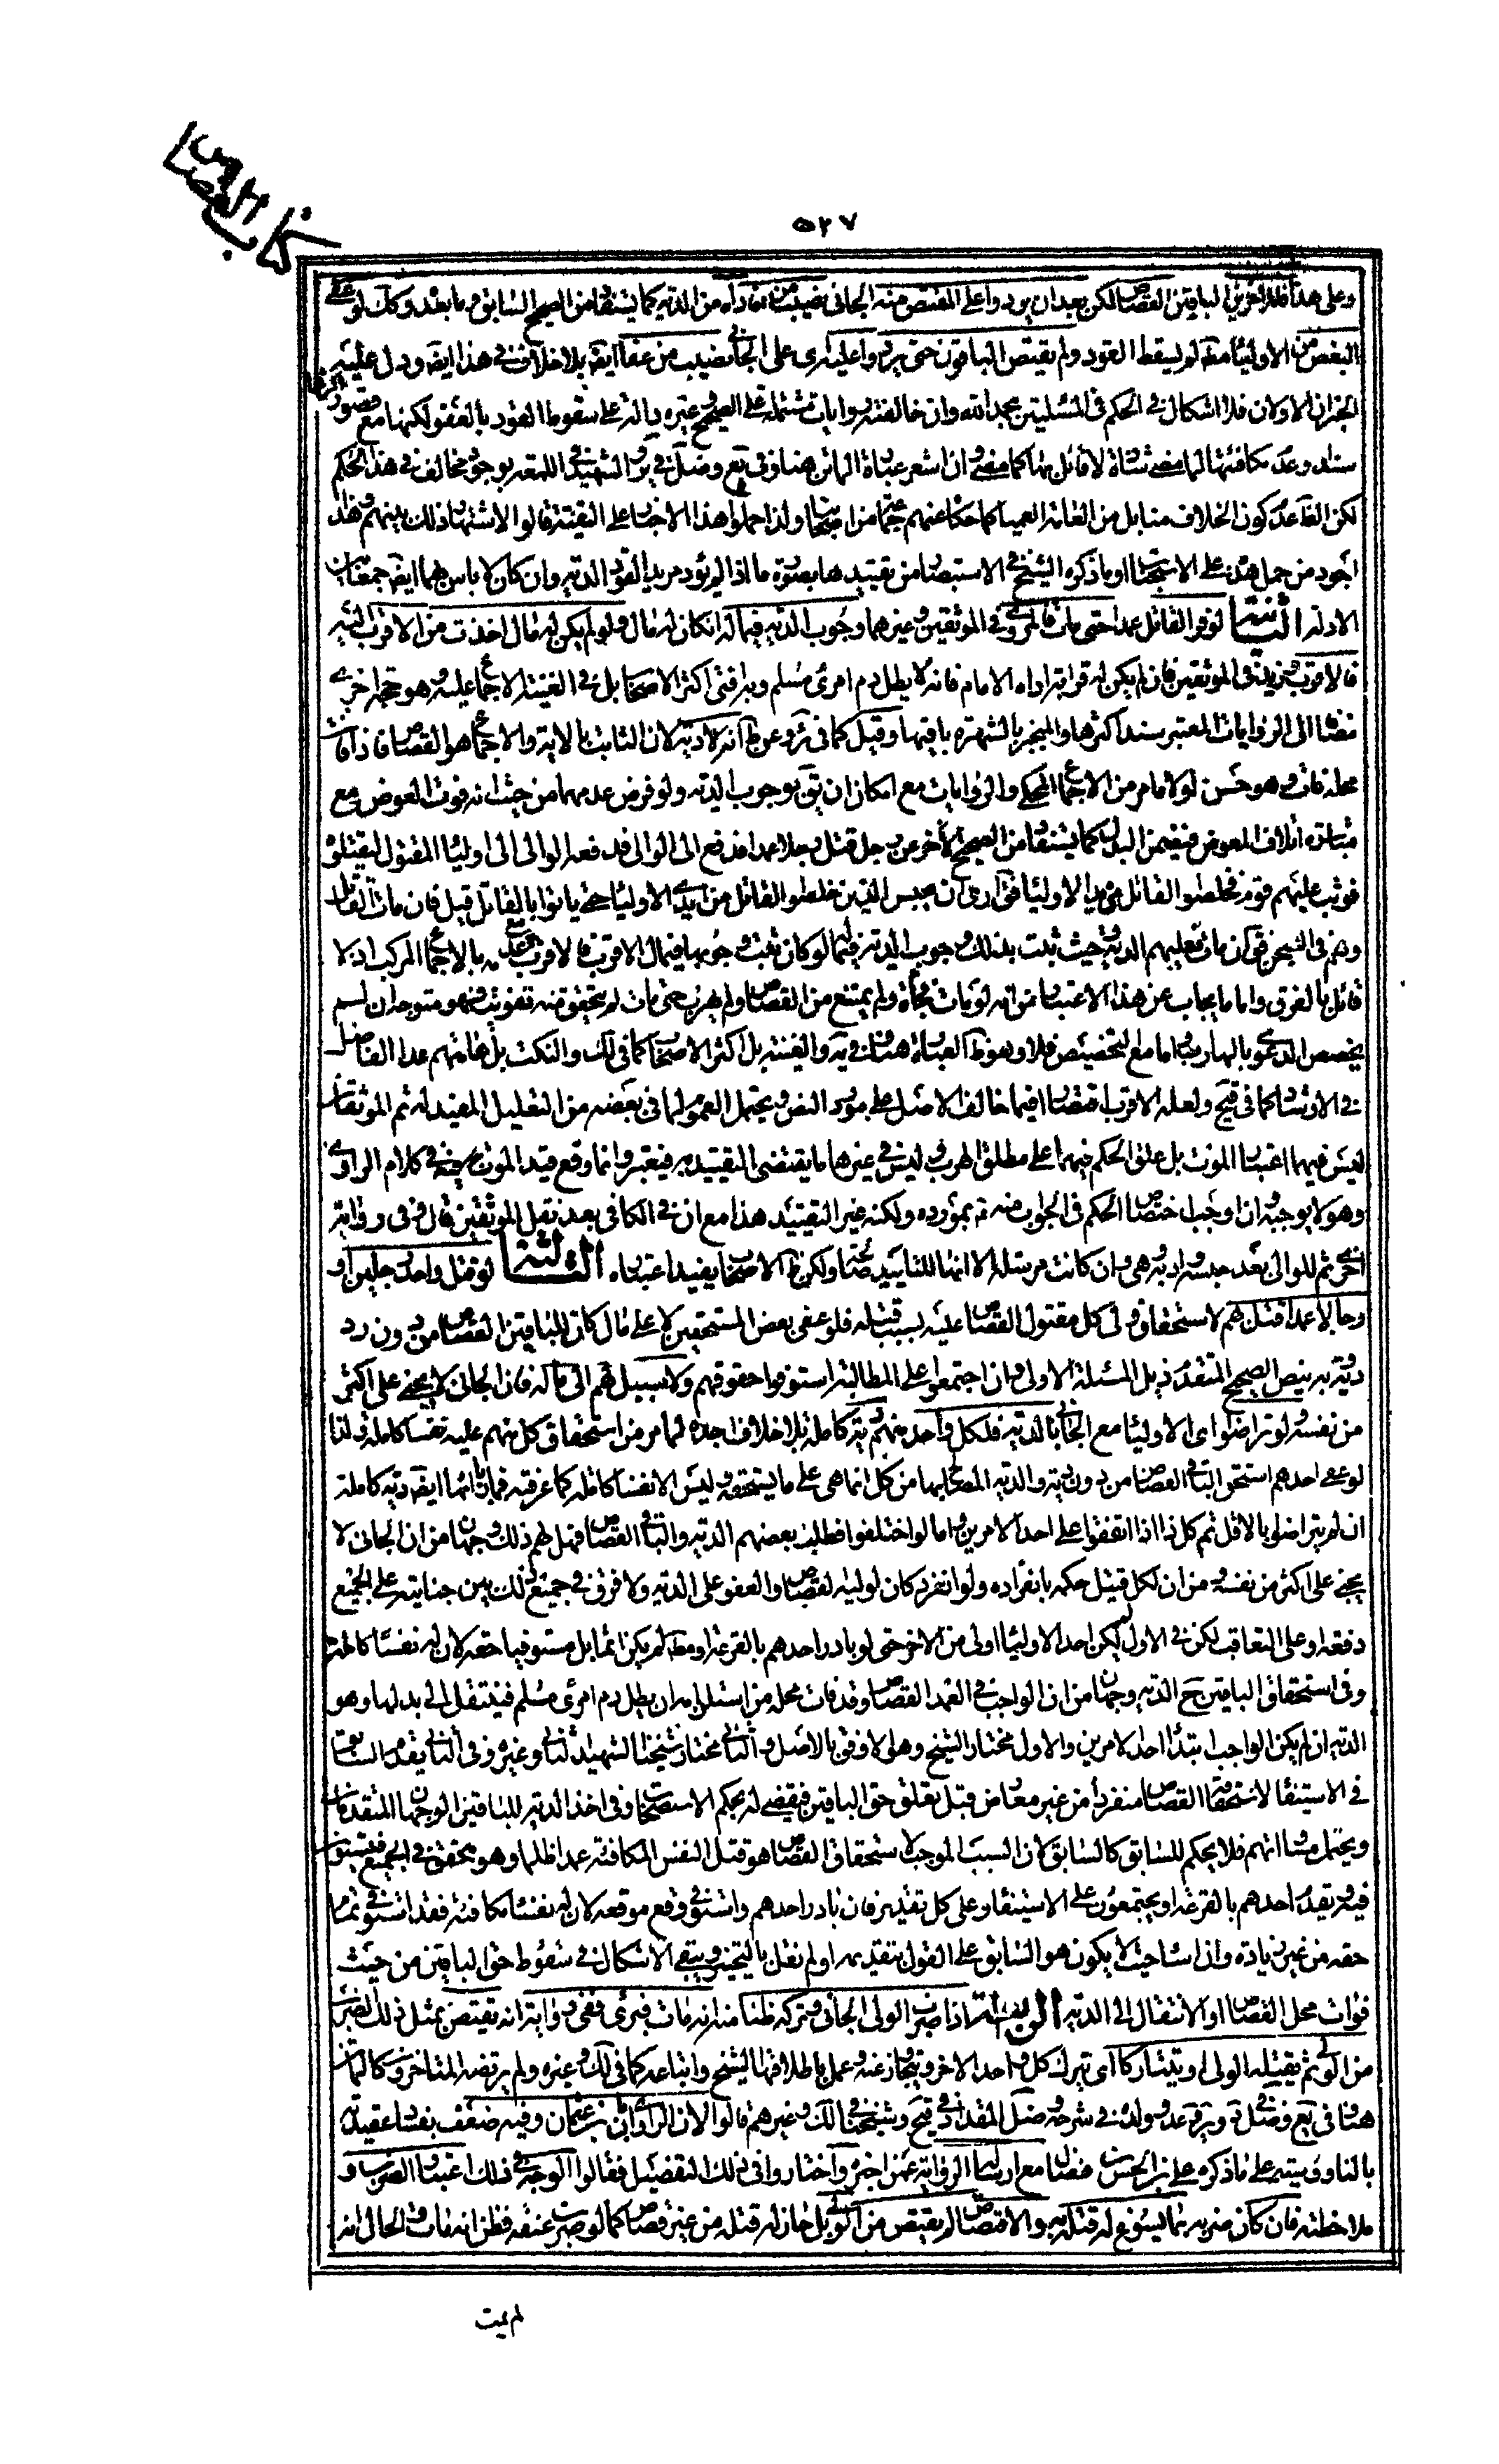 كتاب القصاص
٥٢٧
وعلى هذا فللآخرين الباقين القصاص لكن بعد ان يردوا على المقتص منه الجانى نصيب من فاداه من الدية كما يستفاد من الصحيح السابق وما بعده وكك لو عفى
البعض من الاولياء مط لم يسقط القود ولم يقتص الباقون حتى يردوا عليه اى على الجانى نصيب من عفا ايضا بلا خلاف فى هذا ايضا ودل عليه
الخبران الاولان فلا اشكال فى الحكم فى المسئلتين بحمد الله وان خالفته روايات مشتملة على الصحيح وغيره دالة على سقوط القود بالعفو لكنها مع قصور اكثرها
سندا وعدم مكافئتها لما مضى شاذة لا قائل بها كما مضى وان اشعر عبارة الماتن هنا وفى يع وضل فى ير والشهيد فى اللمعة بوجود مخالف فى هذا الحكم
لكن الظ عدمه كون الخلاف من قابل من العامة العمياء كما حكاه عنهم جمع من اصحابنا ولذا حملوا هذا الاخبار على التقية قالوا لاشتهار ذلك بينهم وهذا
اجود من حمل هذه على الاستحباب او ما ذكره الشيخ فى الاستبصار من تقييدها بصورة ما اذا لم يؤد مريد القود الدية وان كان لا باس بهما ايضا جمعا بين
الادلة الثانية لو فر القاتل عمدا حتى مات فالمروى فى الموثقين وغيرهما وجوب الدية فى ماله ان كان له مال ولو لم يكن له مال اخذت من الاقرب اليه
فالاقرب وزيد فى الموثقين فان لم يكن له قرابة اداه الامام فانه لا يطل دم امرئ مسلم وبه افتى اكثر الاصحاب بل فى الغنية الاجماع عليه وهو حجة اخرى
مضافا الى الروايات المعتبر سند اكثرها والمنجبر بالشهرة باقيها وقيل كما فى ئر وعن ط انه لا دية لان الثابت بالاية والاجماع هو القصاص فاذا فات
محله فات وهو حسن لولا ما مر من الاجماع المحكى والروايات مع امكان ان يق بوجوب الدية ولو فرض عدمهما من حيث انه فوت العوض مع
مباشرة اتلاف المعوض فيضمن البدل كما يستفاد من الصحيح الآخر عن رجل قتل رجلا عمدا فدفع الى الوالى فدفعه الوالى الى اولياء المقتول ليقتلوه
فوثب عليهم قوم فخلصوا القاتل من يد الاولياء فق ارى ان يحبس الذين خلصوا القاتل من ايدى الاولياء حتى ياتوا بالقاتل قيل فان مات القاتل
وهم فى السجن ق ان مات فعليهم الدية وحيث ثبت بذلك وجوب الدية فى ماله لو كان ثبت وجوبها فى مال الاقرب فالاقرب مع عدمه بالاجماع المركب اذ لا
قائل بالفرق واما ما يجاب عن هذا الاعتبار من انه لو مات فجأة ولم يمتنع من القصاص ولم يهرب حتى مات لم يتحقق منه تفويت فهو متوجه ان لم
يخصص الدعوى بالهارب واما مع التخصيص فلا وهو ظ العبارة هنا وفى يه والغنية بل اكثر الاصحاب كما فى لك والنكت بل عامتهم عدا الفاضل
فى الارشاد كما فى قيح ولعله الاقرب اقتصارا فيما خالف الاصل على مورد النص ويحتمل العموم لما فى بعضه من التعليل المفيد له ثم الموثقان
ليس فيهما اعتبار الموت بل علق الحكم فيهما على مطلق الهرب وليس فى غيرهما ما يقتضى التقييد به فيعتبر وانما وقع قيد الموت فيه فى كلام الراوى
وهو لا يوجبه ان اوجب اختصاص الحكم فى الجواب منه بمورده ولكنه غير التقييد هذا مع ان فى الكافى بعد نقل الموثقين قال وفى رواية
اخرى ثم للوالى بعد حبسه وادبه وهى وان كانت مرسلة الا انها للتاييد صالحة ولكن ظ الاصحاب يفيد اعتباره الثالثة لو قتل واحد رجلين او
رجالا عمدا قتل بهم لاستحقاق ولى كل مقتول القصاص عليه بسبب قتله فلو عفى بعض المستحقين لا على مال كان للباقين القصاص من دون رد
دية به بنص الصحيح المتقدم ذيل المسئلة الاولى وان اجتمعوا على المطالبة استوفوا حقوقهم ولا سبيل لهم الى ماله فان الجانى لا يجنى على اكثر
من نفسه ولو تراضوا اى الاولياء مع الجانى بالدية فلكل واحد منهم دية كاملة بلا خلاف اجده لما مر من استحقاق كل منهم عليه نفسا كاملة ولذا
لو عفى احدهم استحق الباقى القصاص من دون دية والدية المصالح بها من كل انما هى على ما يستحقه وليس الا نفسا كاملة كما عرفته فما بازائها ايضا دية كاملة
ان لم يتراضوا بالاقل ثم كل ذا اذا اتفقوا على احد الامرين واما لو اختلفوا فطلب بعضهم الدية والباقى القصاص فهل لهم ذلك وجهان من ان الجانى لا
يجنى على اكثر من نفسه ومن ان لكل قتيل حكمه بانفراده ولو انفرد كان لوليه القصاص والعفو على الدية ولا فرق فى جميع ذلك بين جنايته على الجميع
دفعة او على التعاقب لكن فى الاول لم يكن احد الاولياء اولى من الآخر حتى لو بادر احدهم بالقرعة او مطلقا لم يكن اثما بل مستوفيا حقه لان له نفسا كاملة
وفى استحقاق الباقين ح الدية وجهان من ان الواجب فى العمد القصاص وقد فات محله من استلزامه ان يطل دم امرئ مسلم فينتقل الى بدلها وهو
الدية ان لم يكن الواجب ابتداء احد الامرين والاول مختار الشيخ وهو الاوفق بالاصل والثانى مختار شيخنا الشهيد الثانى وغيره وفى الثانى يقدم السابق
فى الاستيفاء لاستحقاقه القصاص منفردا من غير معارض قبل تعلق حق الباقين فيقضى له بحكم الاستصحاب وفى اخذ الدية للباقين الوجهان المتقدمان
ويحتمل مساواتهم فلا يحكم للسابق كالسابق لان السبب الموجب لاستحقاق القصاص هو قتل النفس المكافئة عمدا ظلما وهو متحقق فى الجميع فيستوون
فيه ويقدم احدهم بالقرعة او يجتمعون على الاستيفاء وعلى كل تقدير فان بادر احدهم واستوفى وقع موقعه لان له نفسا مكافئة فقد استوفى تمام
حقه من غير زيادة وان اساء حيث لا يكون هو السابق على القول بتقديمه او لم نقل بالتخيير ويبقى الاشكال فى سقوط حق الباقين من حيث
فوات محل القصاص او الانتقال الى الدية الرابعة اذا ضرب الولى الجانى وتركه ظنا منه انه مات فبرئ ففى رواية انه يقتص بمثل ذلك الضرب
من الولى ثم يقتله الولى او يتتاركا اى يترك كل واحد الاخر ويتجاوز عنه وعمل باطلاقها الشيخ واتباعه كما فى لك وغيره ولم يرتضه المتاخرون كالماتن
هنا وفى يع وضل فى ير وعد وولده فى شرحه وضل المقداد فى قيح وشيخنا فى لك وغيرهم قالوا لان الراوى ابان بن عثمان وفيه ضعف بفساد عقيدته
بالناووسية على ما ذكره على بن الحسن فضال مع ارساله الرواية عمن اخبره واختاروا فى ذلك التفضيل فقالوا الوجه فى ذلك اعتبار الضرب و
ملاحظته فان كان ضربه بما يسوغ له قتله به والاقتصاص لم يقتص من الولى بل جاز له قتله من غير قصاص كما لو ضرب عنقه فظن انه مات والحال انه
لم يمت